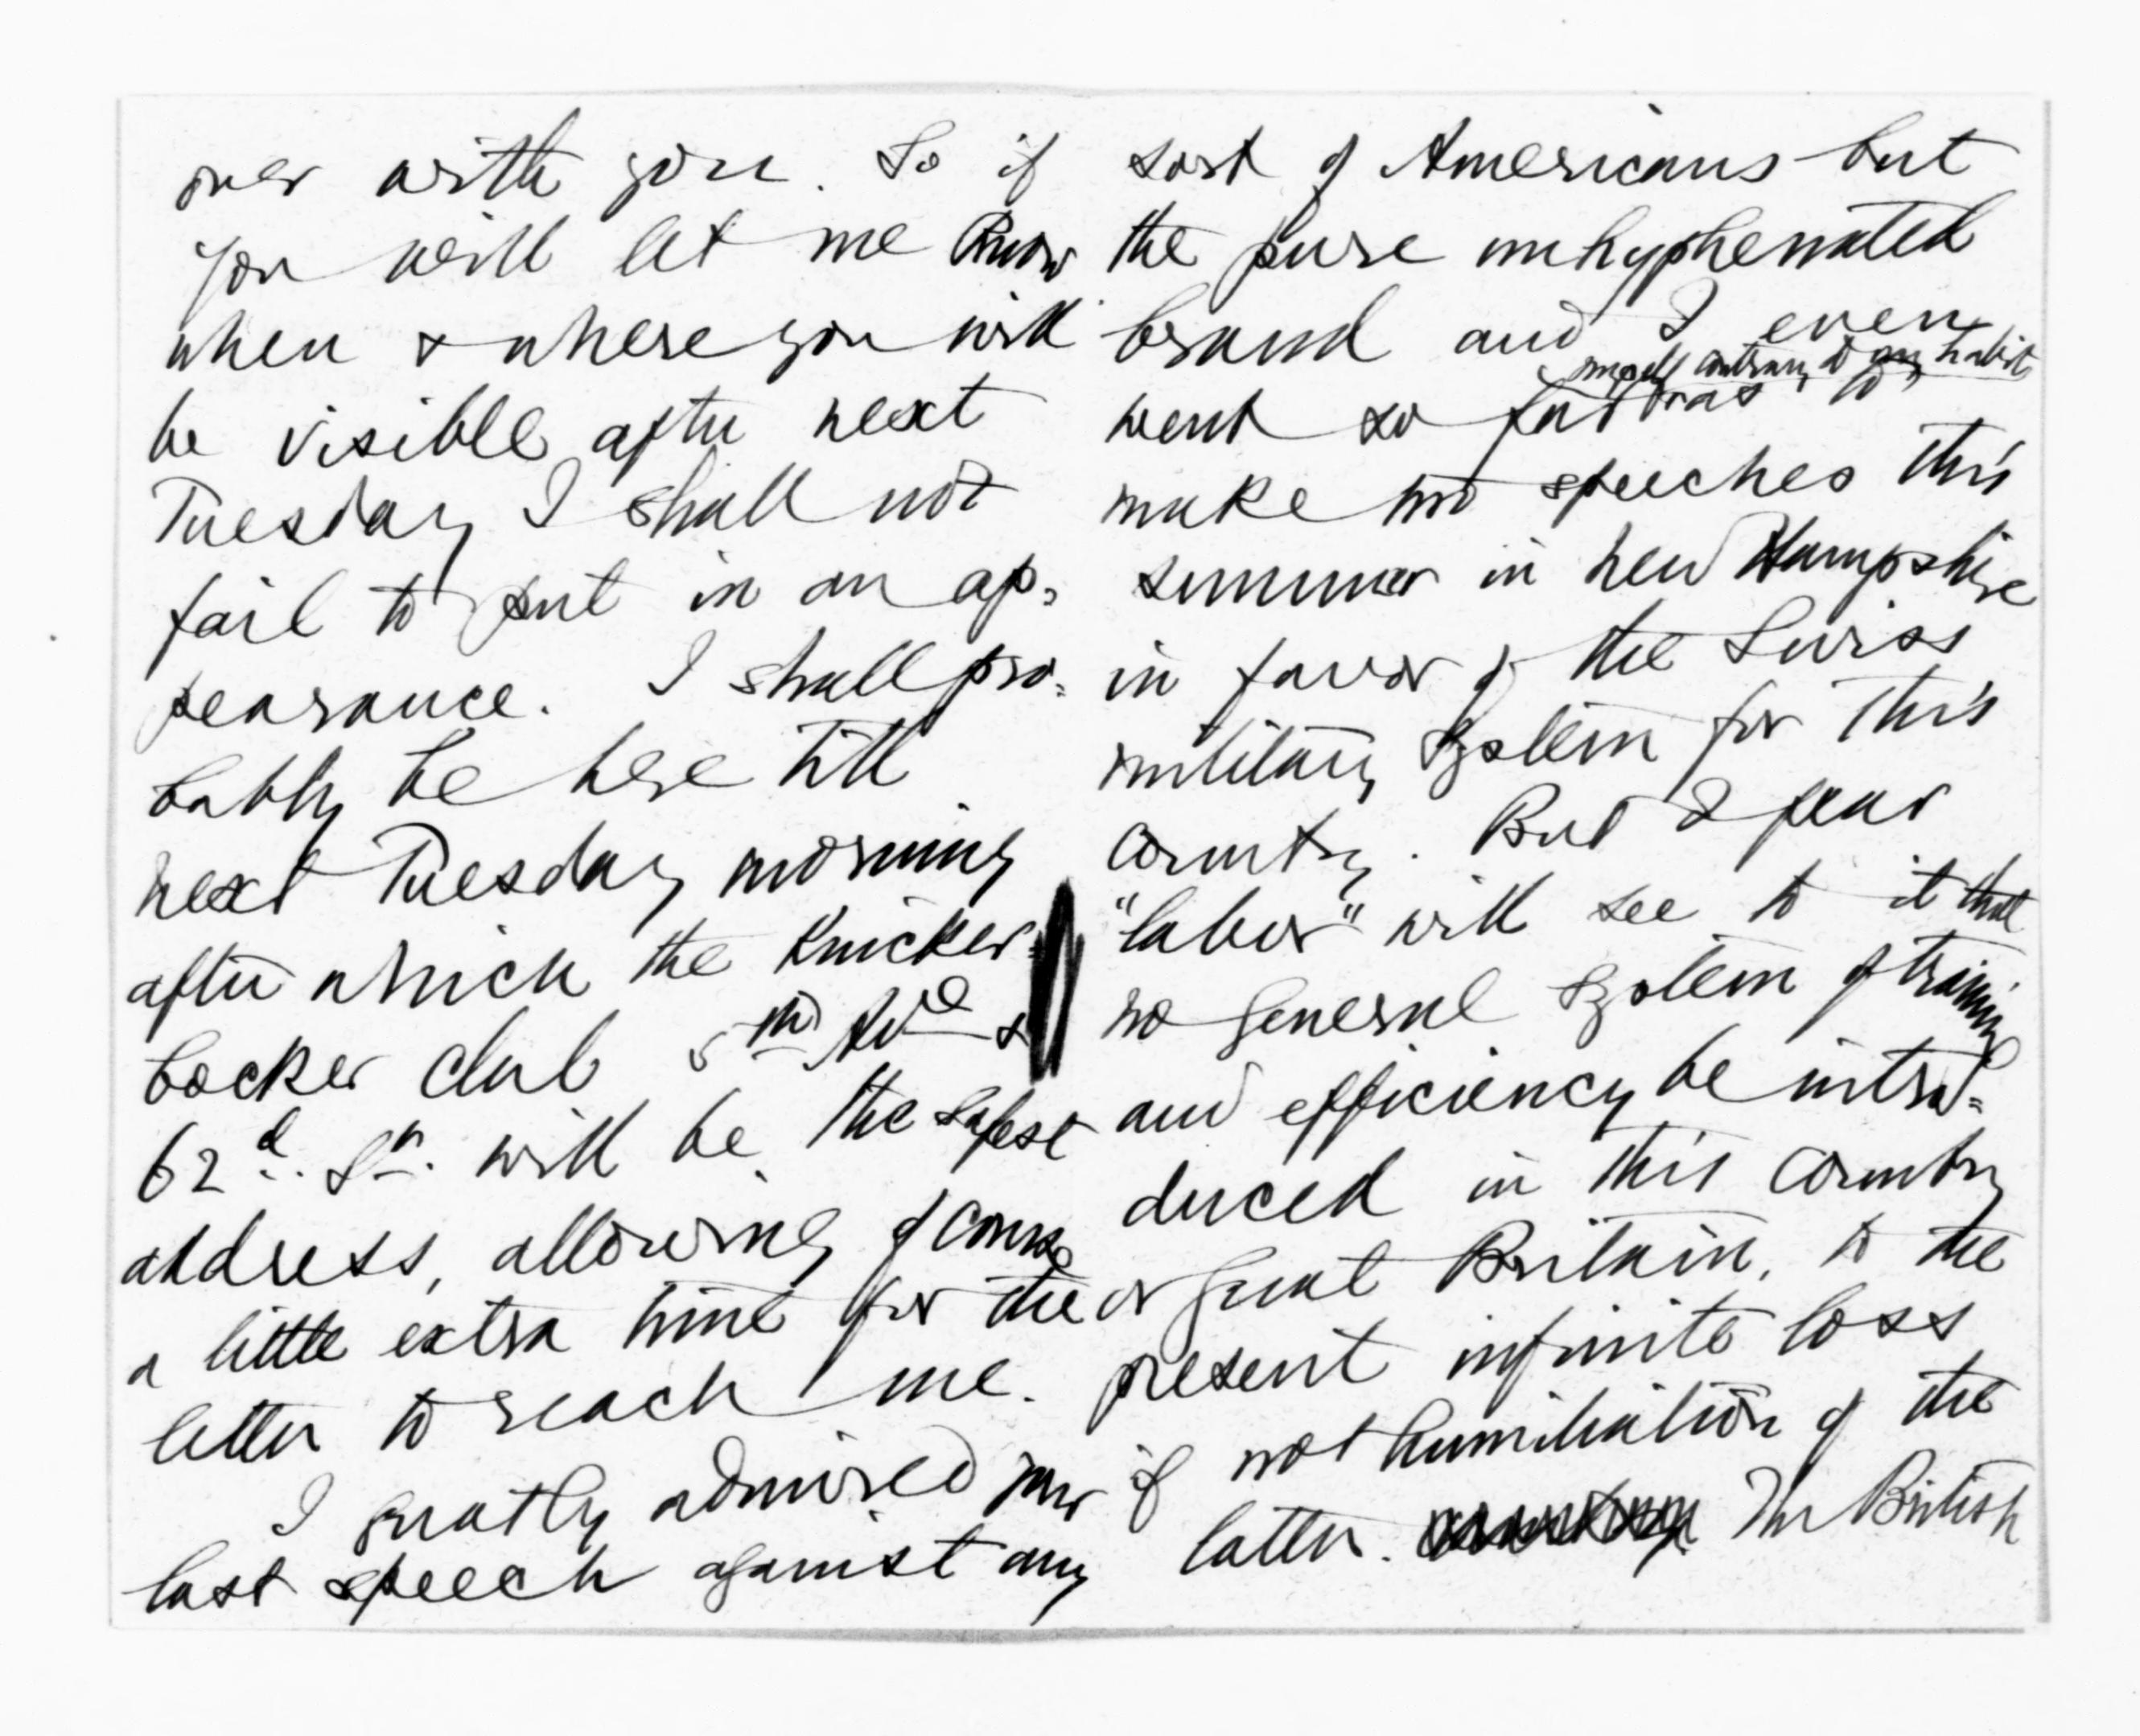 over with you. So if
you will let me know
when & where you will
be visible after next
Tuesday I shall not
fail to put in an ap=
pearance. I shall pro=
bably be here till
next Tuesday morning
after which the Knicker=
bocker Club 5th Ave &
62d. St. will be the safest
address, allowing of course
a little extra time for the
letter to reach me.
I greatly admired your
last speech against any
sort of Americans but
the pure unhyphenated
brand and I even
myself contrary to my habit
went so far as to
make two speeches this
summer in New Hampshire
in favor of the Swiss
military system for this
country. But I fear
"labor" will see to it that
no general system of training
and efficiency be intro=
duced in this country
or Great Britain, to the
present infinite loss
if not humiliation of the
latter. The British